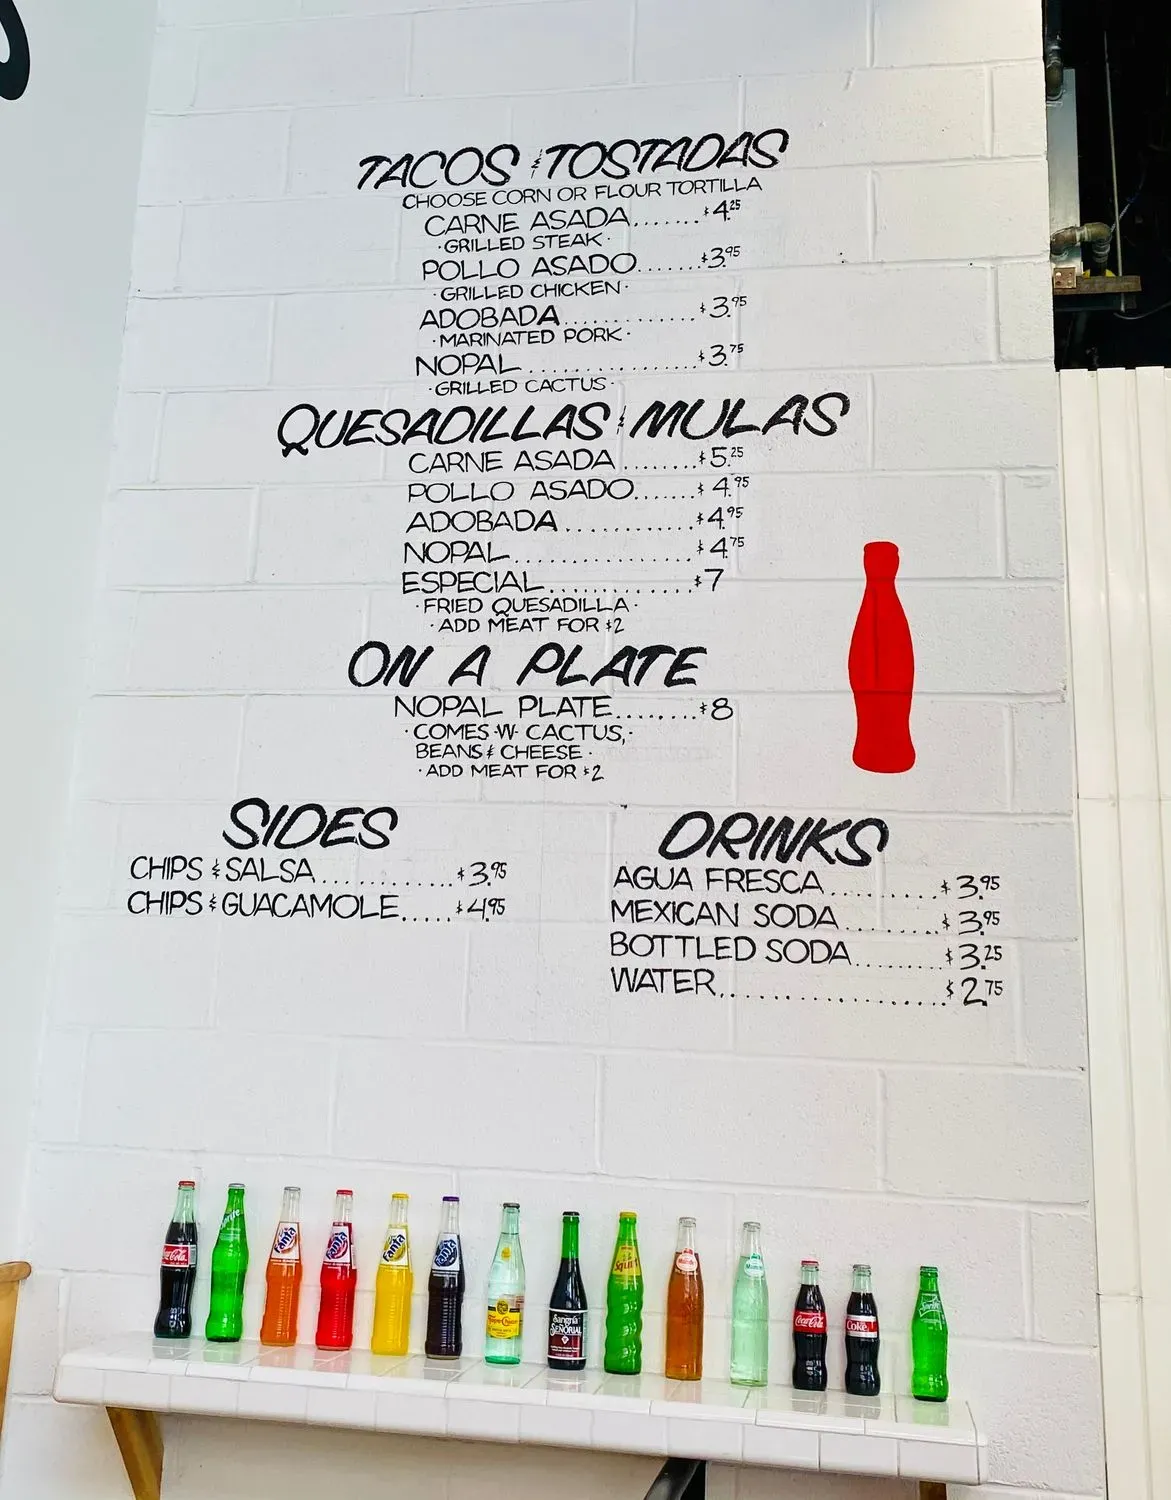 TACOS & TOSTADAS
CHOOSE CORN OR FLOUR TORTILLA
CARNE ASADA.......$4.25
·GRILLED STEAK·
POLLO ASADO.......$3.95
·GRILLED CHICKEN·
ADOBADA..............$3.95
·MARINATED PORK·
NOPAL..................$3.75
·GRILLED CACTUS·
QUESADILLAS & MULAS
CARNE ASADA........$5.25
POLLO ASADO.......$4.95
ADOBADA..............$4.95
NOPAL...................$4.75
ESPECIAL...............$7
·FRIED QUESADILLA·
·ADD MEAT FOR $2
ON A PLATE
NOPAL PLATE........$8
·COMES W CACTUS,·
BEANS & CHEESE·
·ADD MEAT FOR $2
SIDES
CHIPS & SALSA............$3.95
CHIPS & GUACAMOLE.....$4.95
DRINKS
AGUA FRESCA..........$3.95
MEXICAN SODA.........$3.95
BOTTLED SODA.........$3.25
WATER....................$2.75
Coca-Cola
Sprite
Fanta
Fanta
Fanta
Fanta
Topo Chico
Sangría
SEÑORIAL
Squirt
Coca-Cola
Coke
Sprite